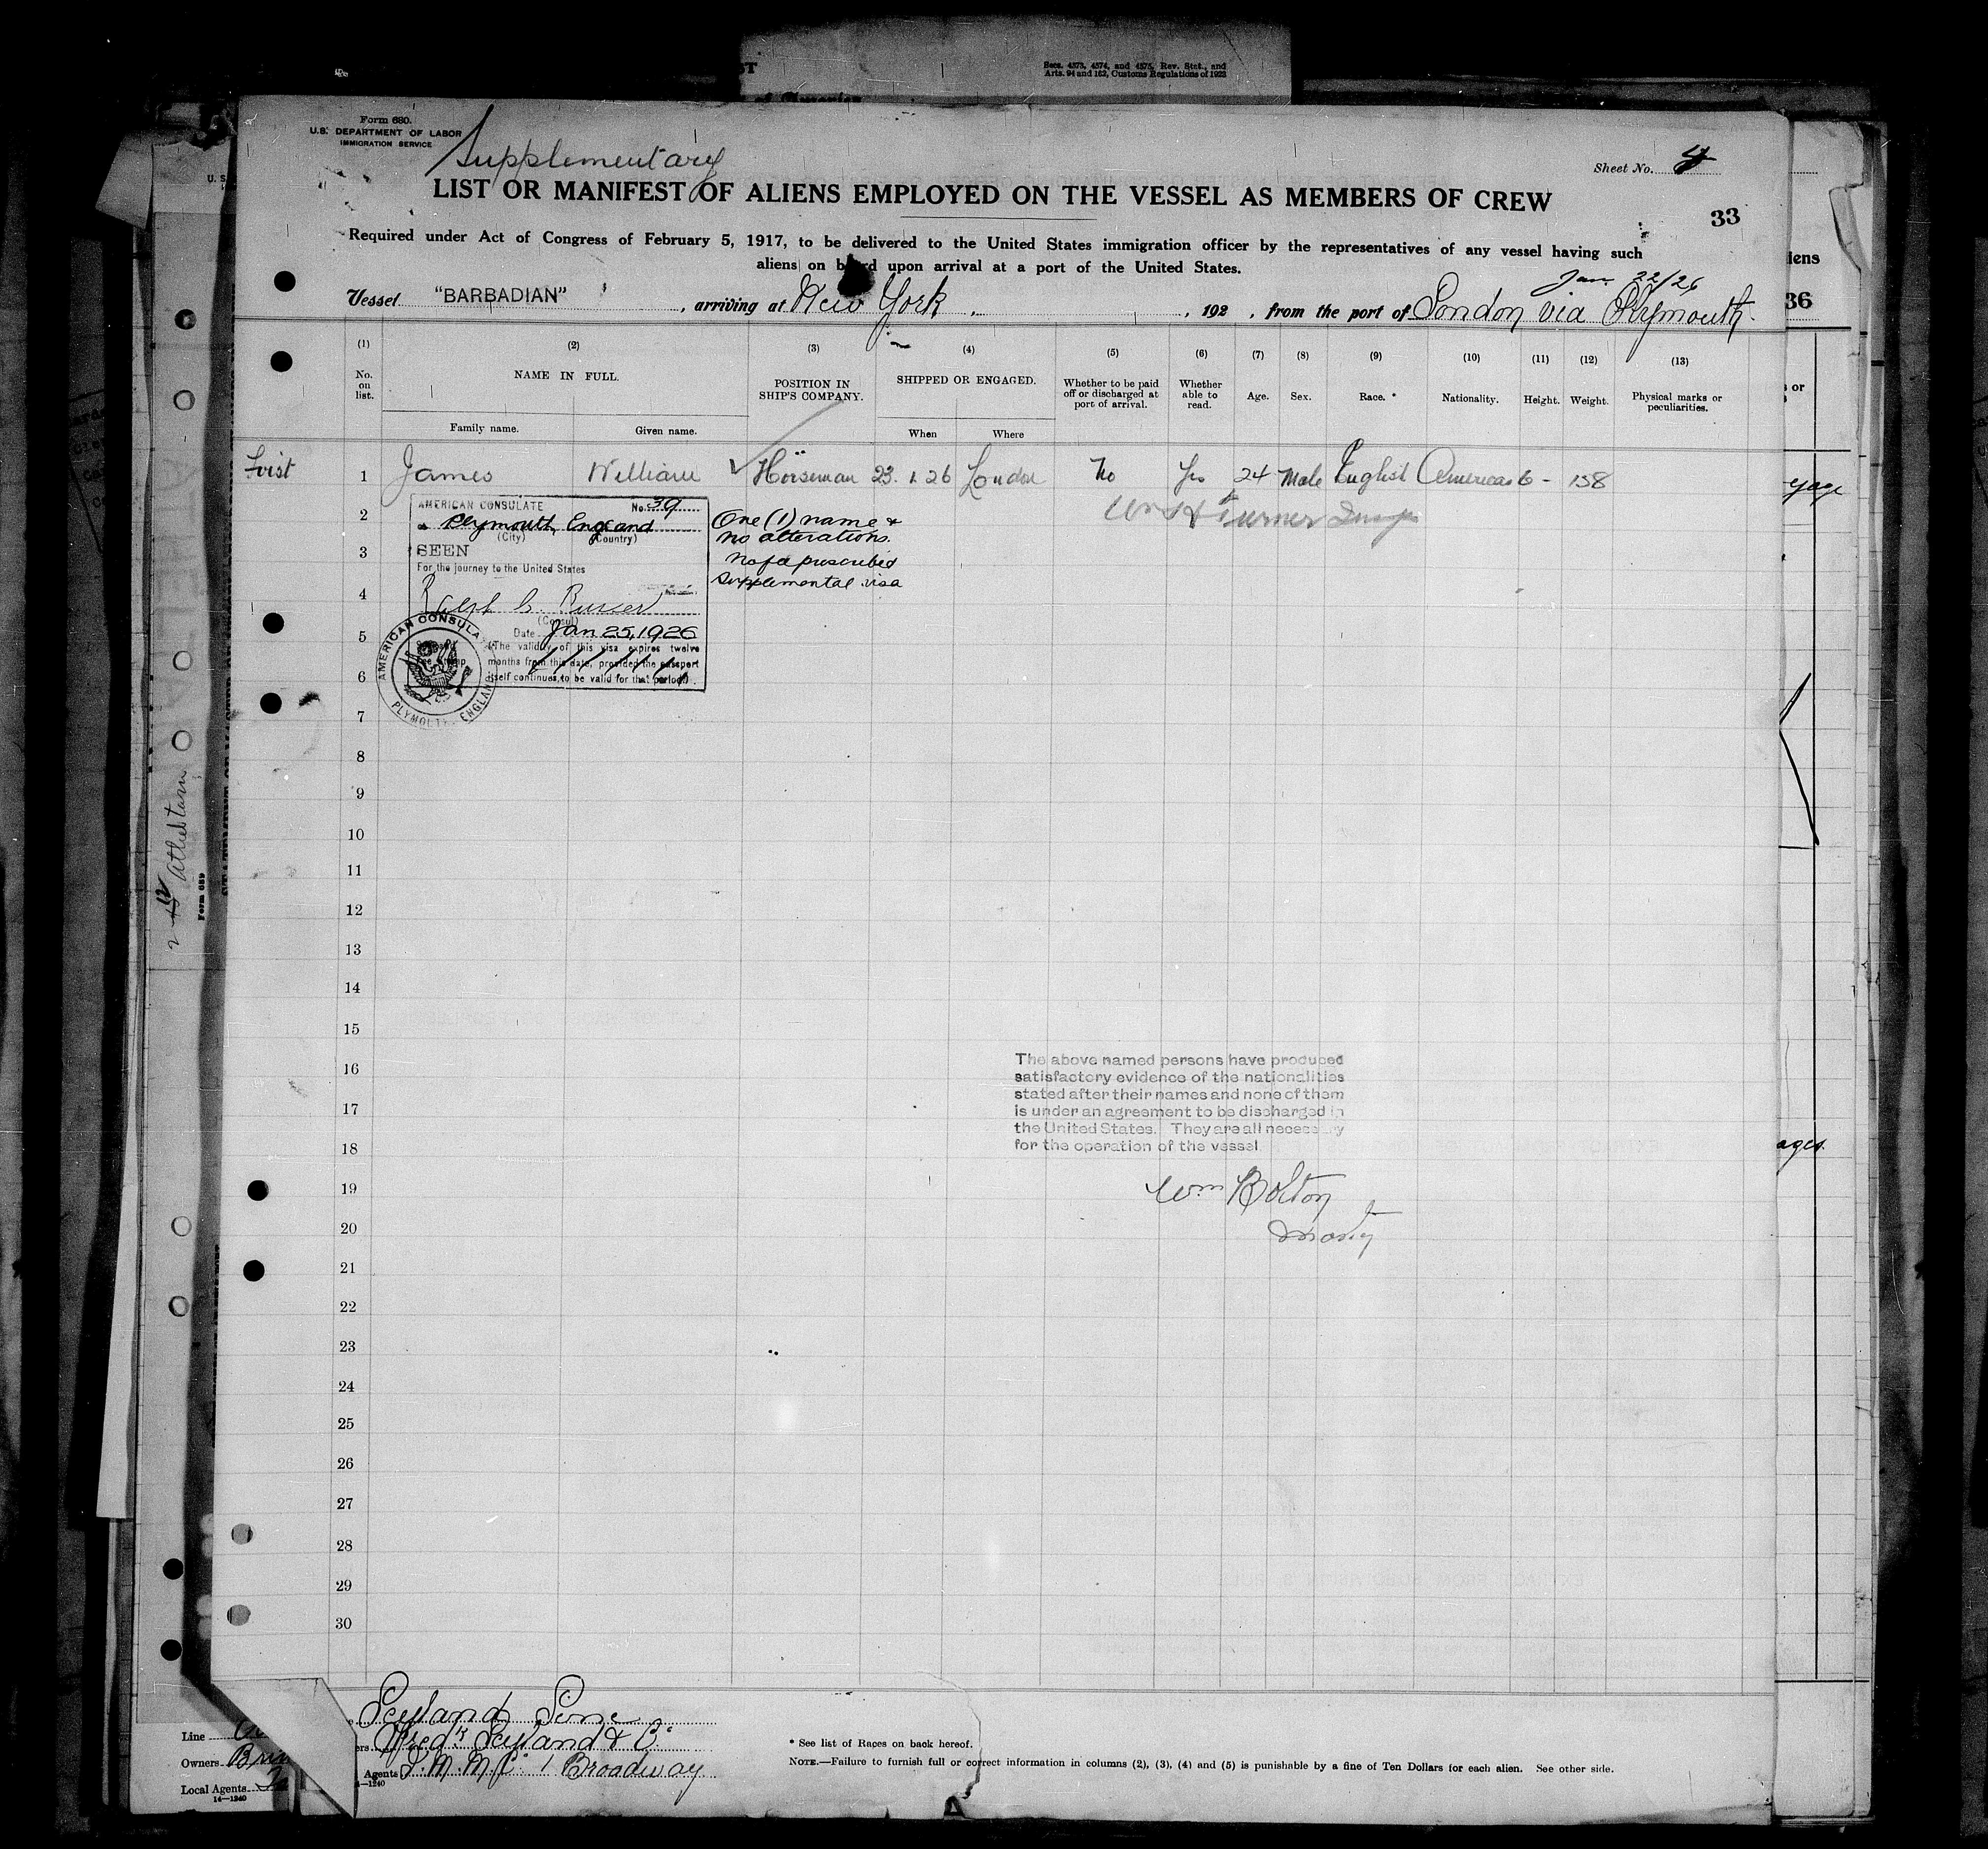 Secs. 4573, 4574, and 4575, Rev. Stat., and
Arts. 94 and 162, Customs Regulations of 1923
of America
Form 680.
U.S. DEPARTMENT OF LABOR
IMMIGRATION SERVICE
Supplementary
Sheet No. 4
LIST OR MANIFEST OF ALIENS EMPLOYED ON THE VESSEL AS MEMBERS OF CREW
33
Required under Act of Congress of February 5, 1917, to be delivered to the United States immigration officer by the representatives of any vessel having such
aliens on board upon arrival at a port of the United States.
Jan 22/26
Vessel "BARBADIAN", arriving at New York, 192 , from the port of London via Plymouth.
(1) (2) (3) (4) (5) (6) (7) (8) (9) (10) (11) (12) (13)
No. on list.
NAME IN FULL.
Family name. Given name.
POSITION IN SHIP'S COMPANY.
SHIPPED OR ENGAGED.
When Where
Whether to be paid off or discharged at port of arrival.
Whether able to read.
Age.
Sex.
Race. *
Nationality.
Height.
Weight.
Physical marks or peculiarities.
1 James William Horseman 23. 1. 26 London No Yes 24 Male English American 6 - 158
Wm H Turner
AMERICAN CONSULATE No. 39
at Plymouth, England
(City) (Country)
SEEN
For the journey to the United States
(Consul)
Date Jan 25, 1926
(The validity of this visa expires twelve
months from this date, provided the passport
itself continues to be valid for that period)
AMERICAN CONSULA
PLYMOUTH, ENGLAND
One (1) name &
no alterations.
No fee prescribed
Supplemental visa
2
3
4
5
6
7
8
9
10
11
12
13
14
15
16
17
18
19
20
21
22
23
24
25
26
27
28
29
30
The above named persons have produced
satisfactory evidence of the nationalities
stated after their names and none of them
is under an agreement to be discharged in
the United States. They are all necessary
for the operation of the vessel
Wm Bolton
Leyland Line
Fredk Leyland & Co
Agents I.M.M. Co 1 Broadway
14—1240
* See list of Races on back hereof.
NOTE.—Failure to furnish full or correct information in columns (2), (3), (4) and (5) is punishable by a fine of Ten Dollars for each alien. See other side.
Line
Owners
Local Agents
14—1240
Form 689
liens
36